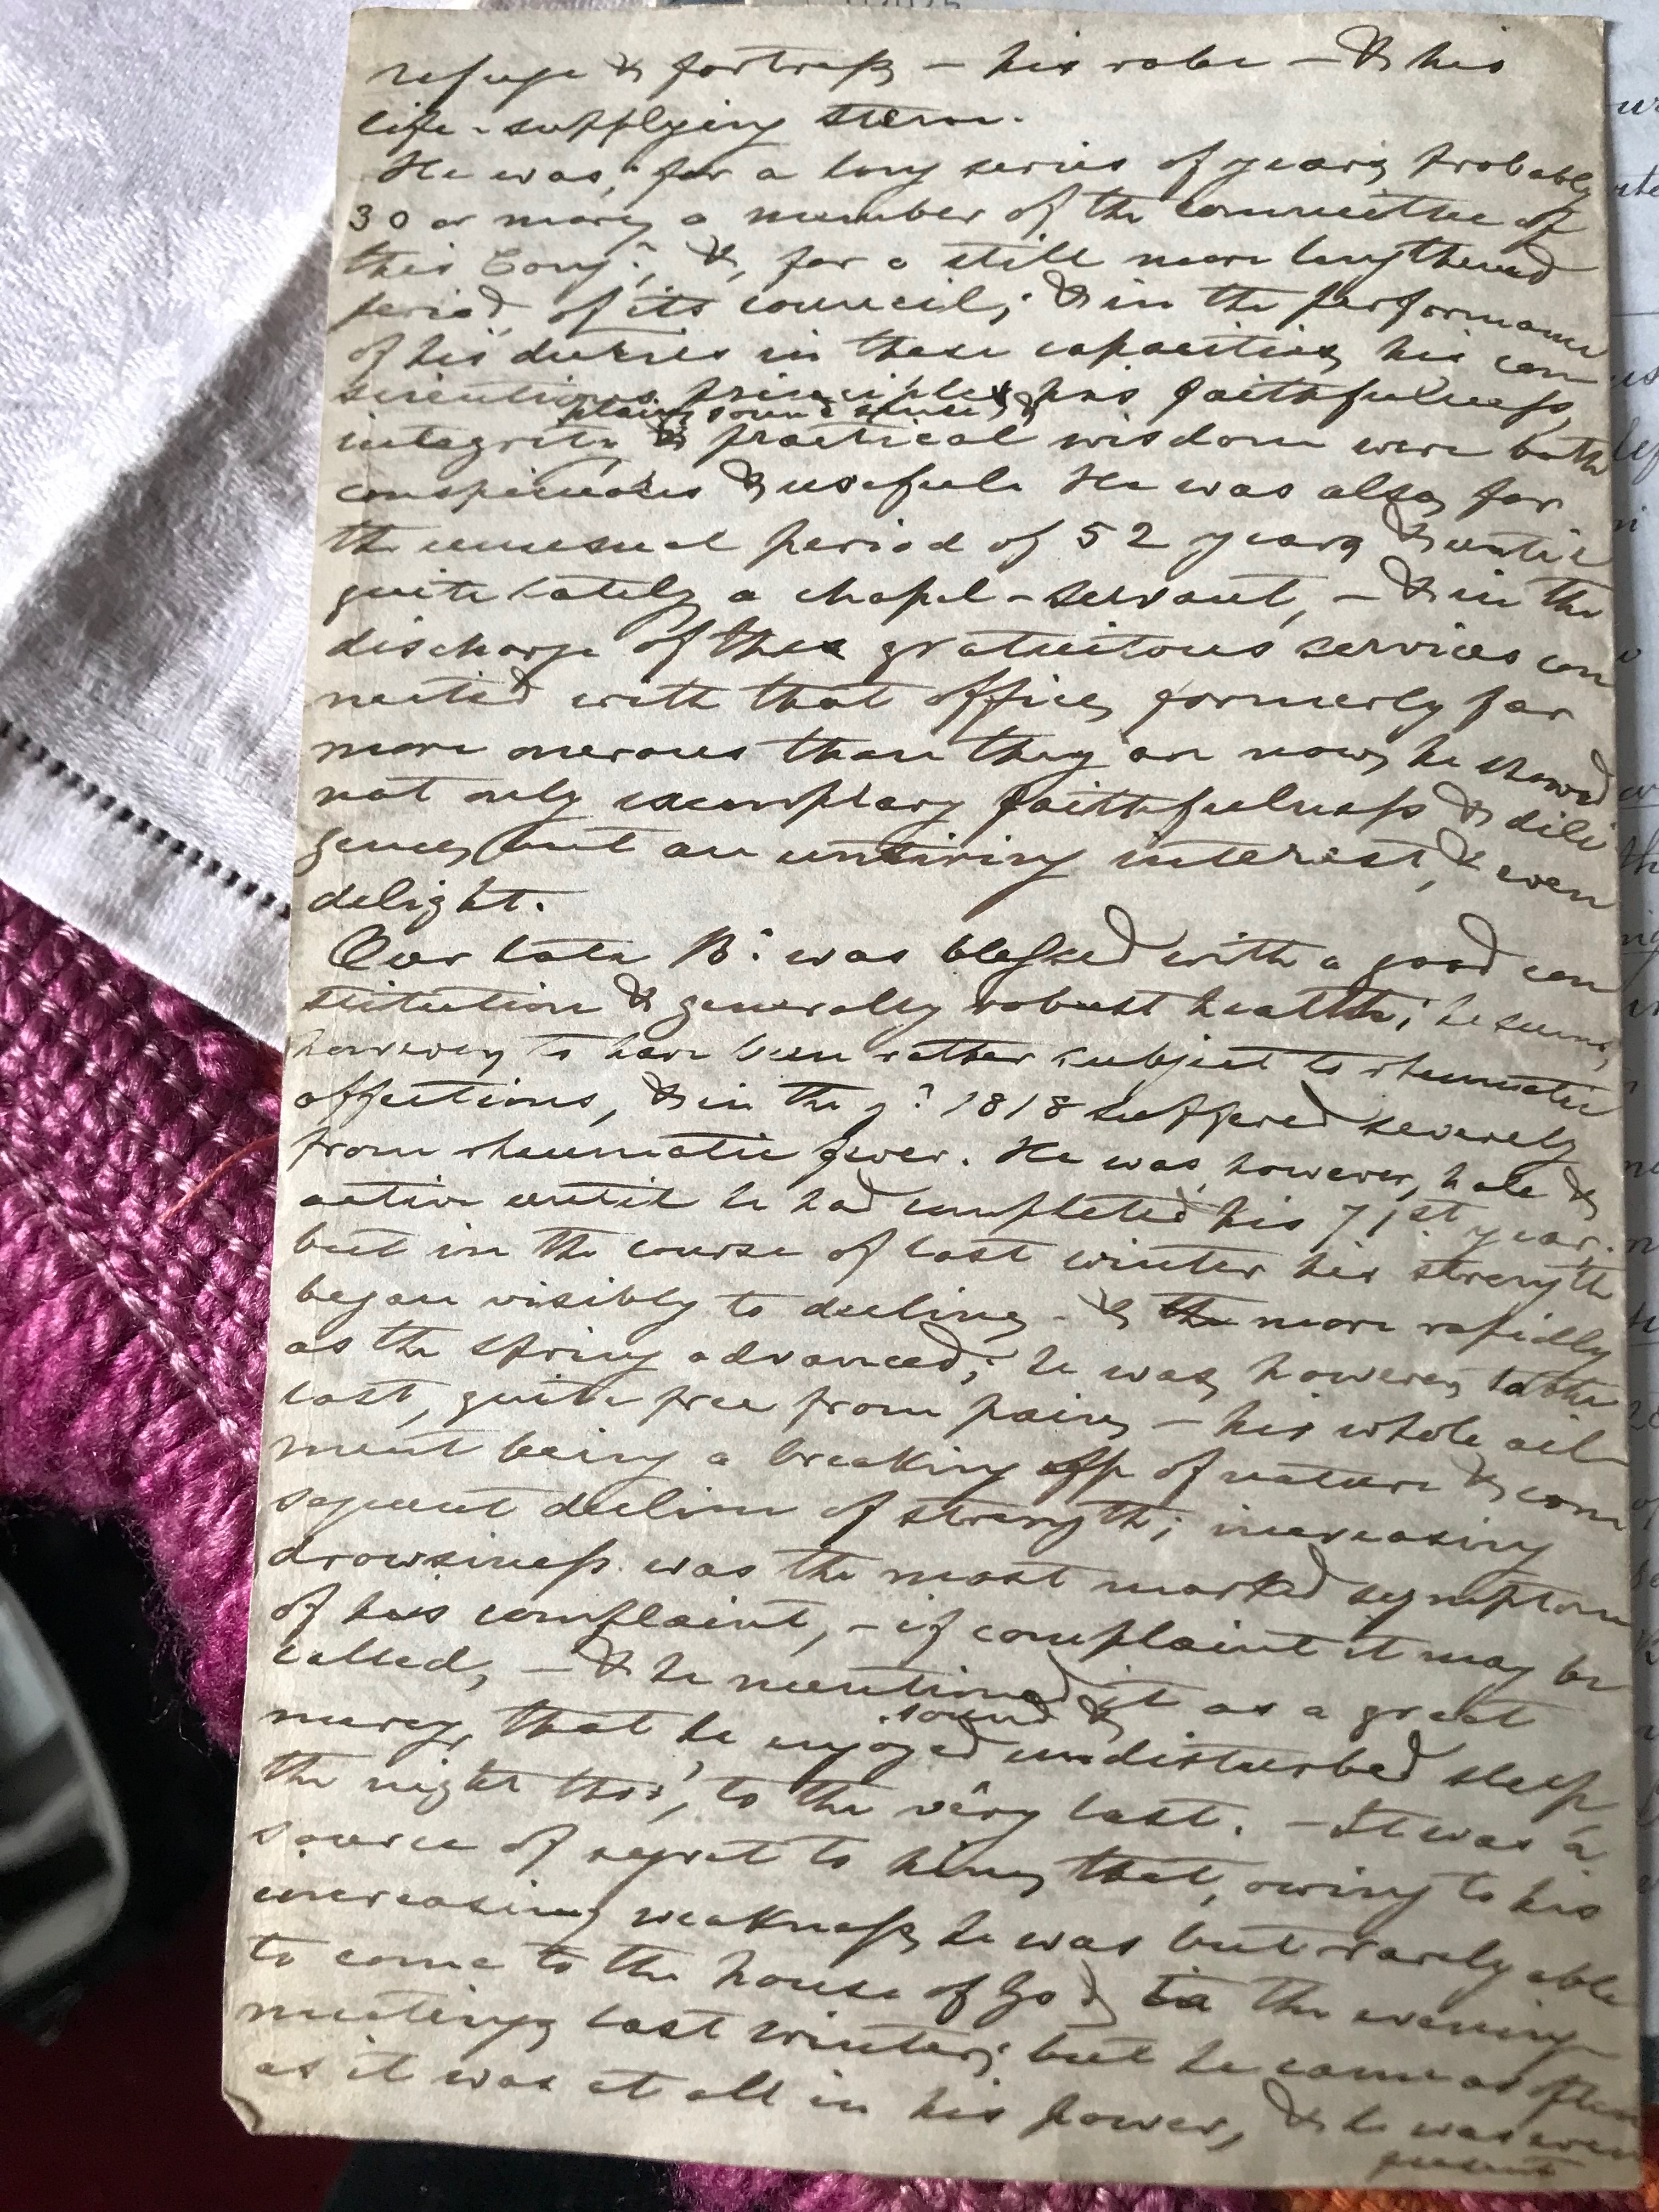 refuge & fortress – his robe – & his
life-supplying stem.
He was, for a long series of years, probably
30 or more, a member of the committee of
this Congn, &, for a still more lengthened
period, of its council; & in the performance
of his duties in these capacities, his con
scientious principles, his faithfulness,
plain sound sense, &
integrity & practical wisdom were both
conspicuous & useful. He was also, for
the unusual period of 52 years, & until
quite lately, a chapel-servant, – & in the
discharge of the gratuitous services con
nected with that office, formerly far
more onerous than they are now, he showed
not only exemplary faithfulness & dili
gence, but an untiring interest, & even
delight.
Our late Br was blessed with a good con
stitution & generally robust health; he seems,
however, to have been rather subject to rheumatic
affections, & in the yr 1818 suffered severely
from rheumatic fever. He was, however, hale &
active until he had completed his 71st year;
but in the course of last winter his strength
began visibly to decline, & the more rapidly
as the spring advanced; he was, however, to the
last, quite free from pain, – his whole ail
ment being a breaking up of nature & con
sequent decline of strength; increasing
drowsiness was the most marked symptom
of his complaint, – if complaint it may be
called, – & he mentioned it as a great
sound &
mercy, that he enjoyed undisturbed sleep
the night thro', to the very last. – It was a
source of regret to him, that, owing to his
increasing weakness, he was but rarely able
to come to the house of God, to the evening
meetings last winter; but he came as often
as it was at all in his power, & he was even
present